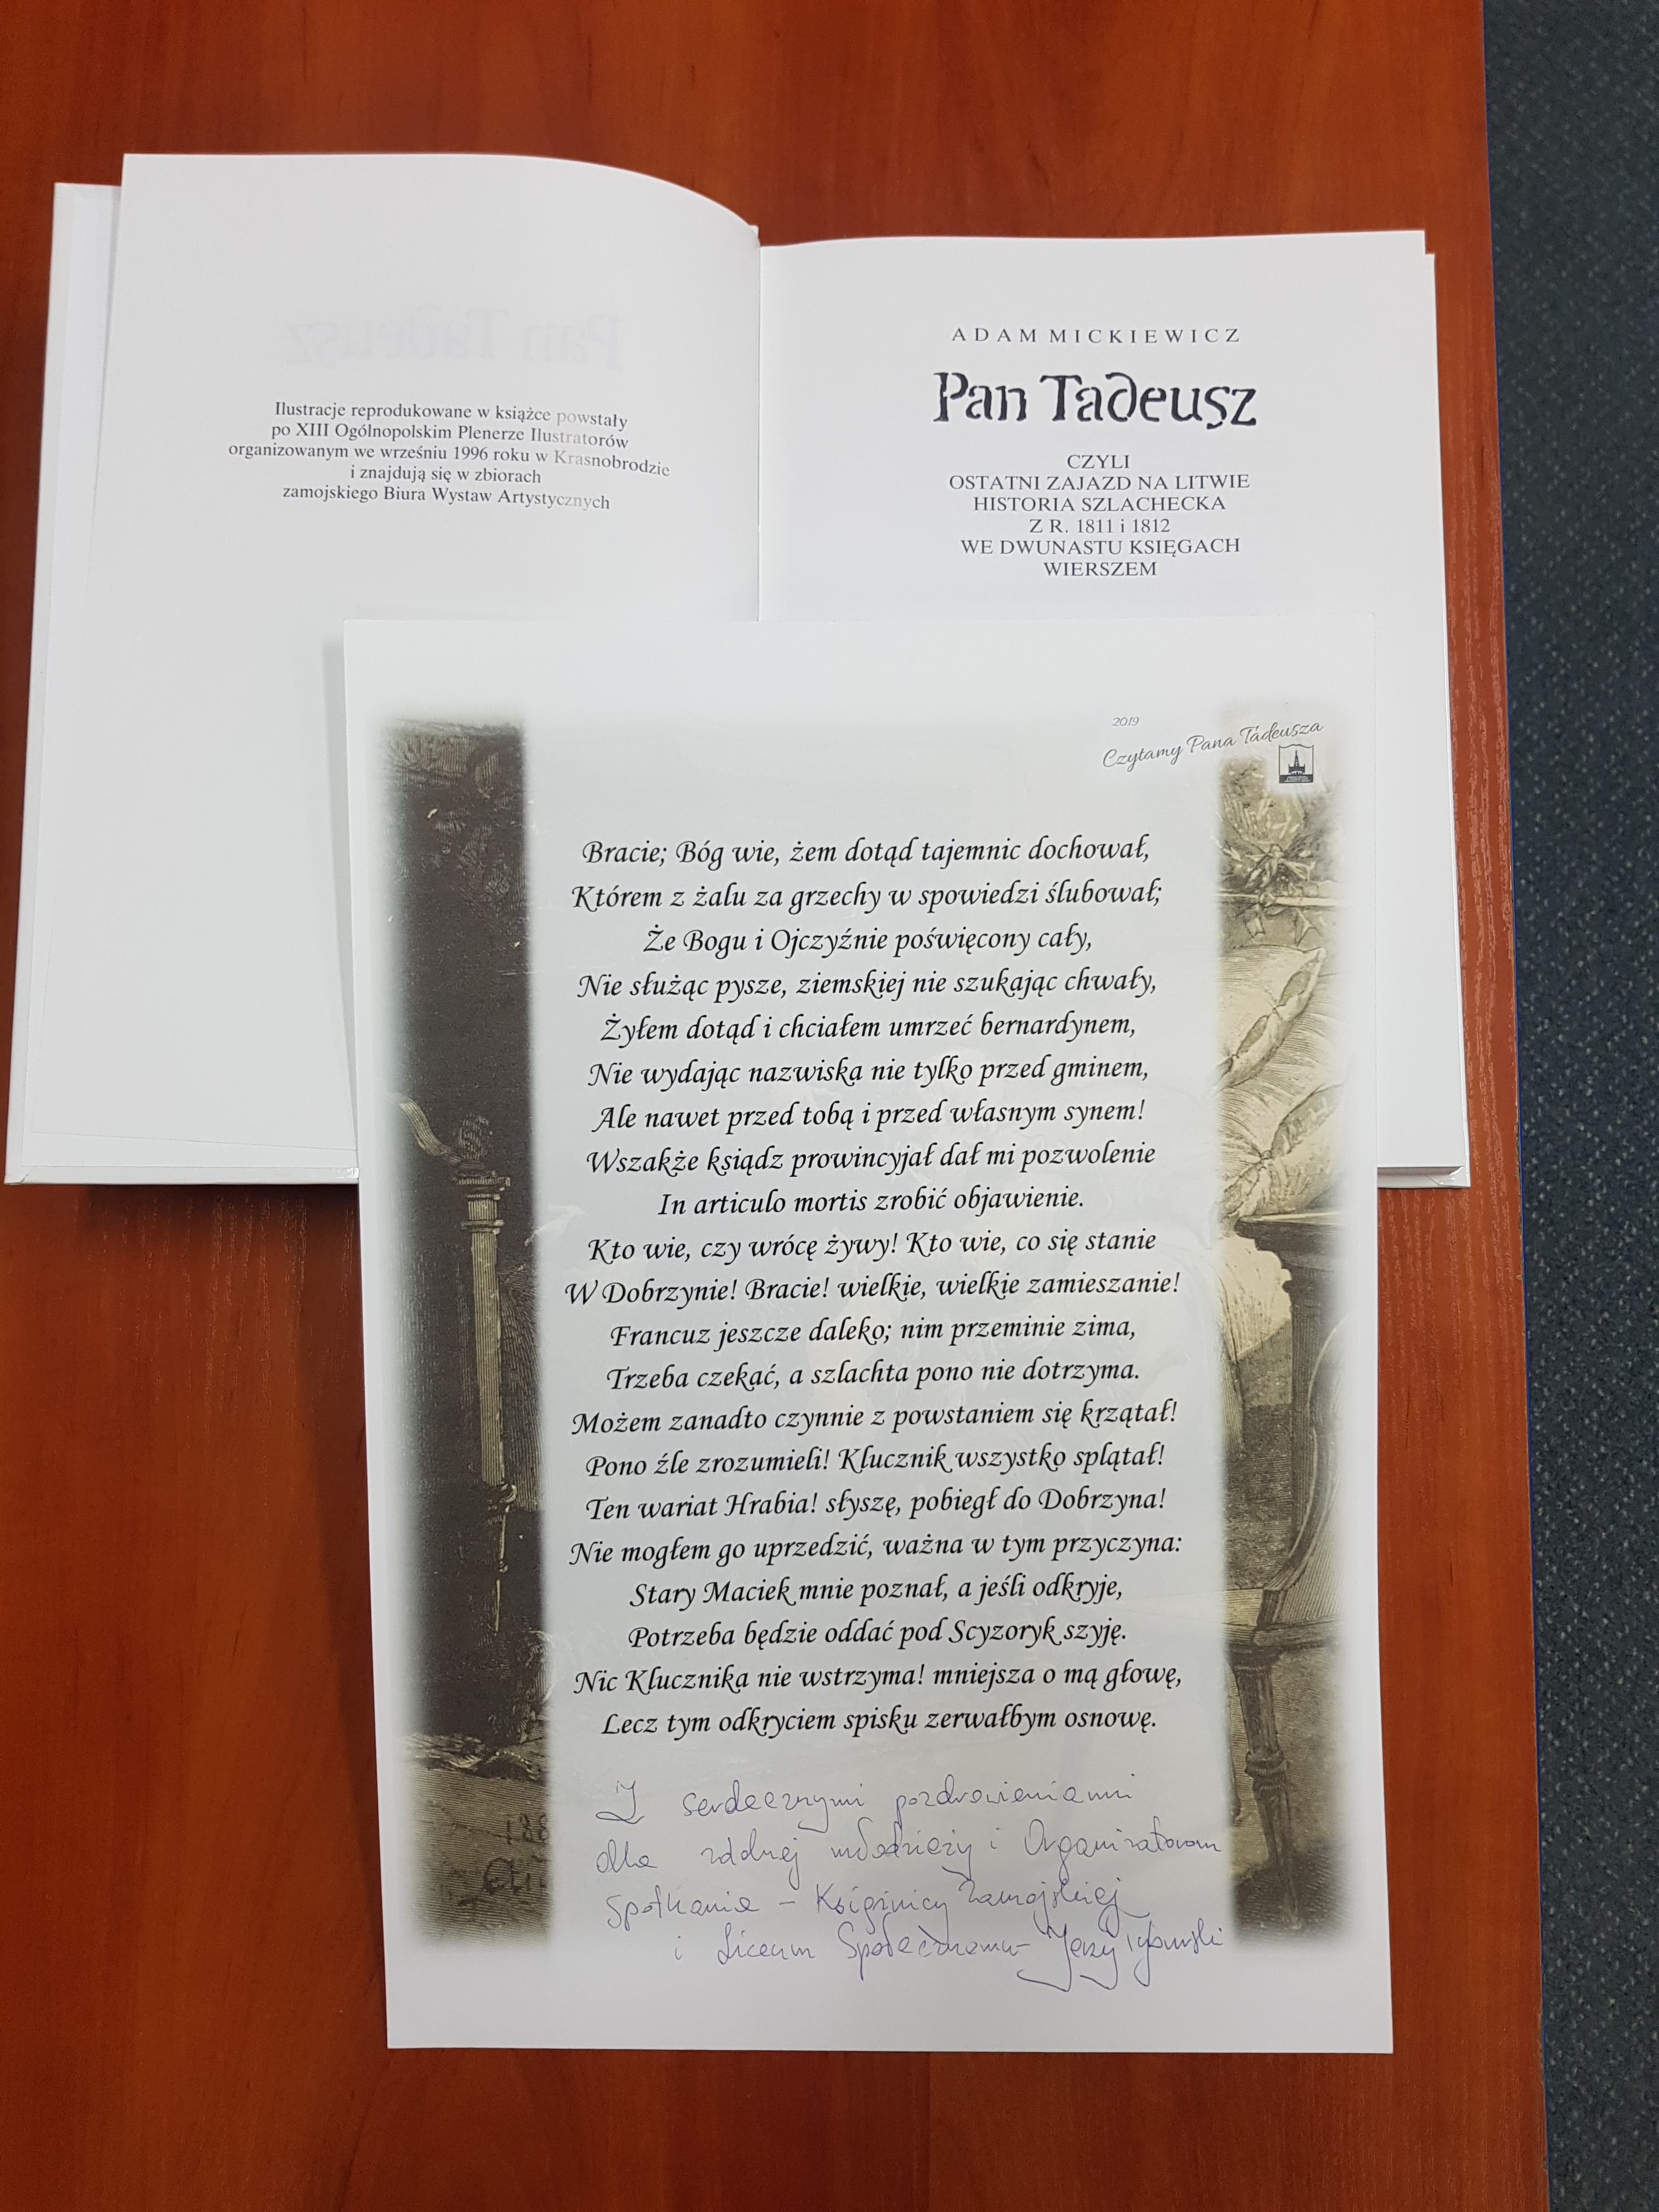 Ilustracje reprodukowane w książce powstały
po XIII Ogólnopolskim Plenerze Ilustratorów
organizowanym we wrześniu 1996 roku w Krasnobrodzie
i znajdują się w zbiorach
zamojskiego Biura Wystaw Artystycznych
ADAM MICKIEWICZ
Pan Tadeusz
CZYLI
OSTATNI ZAJAZD NA LITWIE
HISTORIA SZLACHECKA
Z R. 1811 i 1812
WE DWUNASTU KSIĘGACH
WIERSZEM
2019
Czytamy Pana Tadeusza
Bracie; Bóg wie, żem dotąd tajemnic dochował,
Którem z żalu za grzechy w spowiedzi ślubował;
Że Bogu i Ojczyźnie poświęcony cały,
Nie służąc pysze, ziemskiej nie szukając chwały,
Żyłem dotąd i chciałem umrzeć bernardynem,
Nie wydając nazwiska nie tylko przed gminem,
Ale nawet przed tobą i przed własnym synem!
Wszakże ksiądz prowincyjał dał mi pozwolenie
In articulo mortis zrobić objawienie.
Kto wie, czy wrócę żywy! Kto wie, co się stanie
W Dobrzynie! Bracie! wielkie, wielkie zamieszanie!
Francuz jeszcze daleko; nim przeminie zima,
Trzeba czekać, a szlachta pono nie dotrzyma.
Możem zanadto czynnie z powstaniem się krzątał!
Pono źle zrozumieli! Klucznik wszystko splątał!
Ten wariat Hrabia! słyszę, pobiegł do Dobrzyna!
Nie mogłem go uprzedzić, ważna w tym przyczyna:
Stary Maciek mnie poznał, a jeśli odkryje,
Potrzeba będzie oddać pod Scyzoryk szyję.
Nic Klucznika nie wstrzyma! mniejsza o mą głowę,
Lecz tym odkryciem spisku zerwałbym osnowę.
Z serdecznymi pozdrowieniami
dla zdolnej młodzieży i Organizatorom
Spotkania – Książnicy Zamojskiej
i Liceum Społecznemu – Jerzy